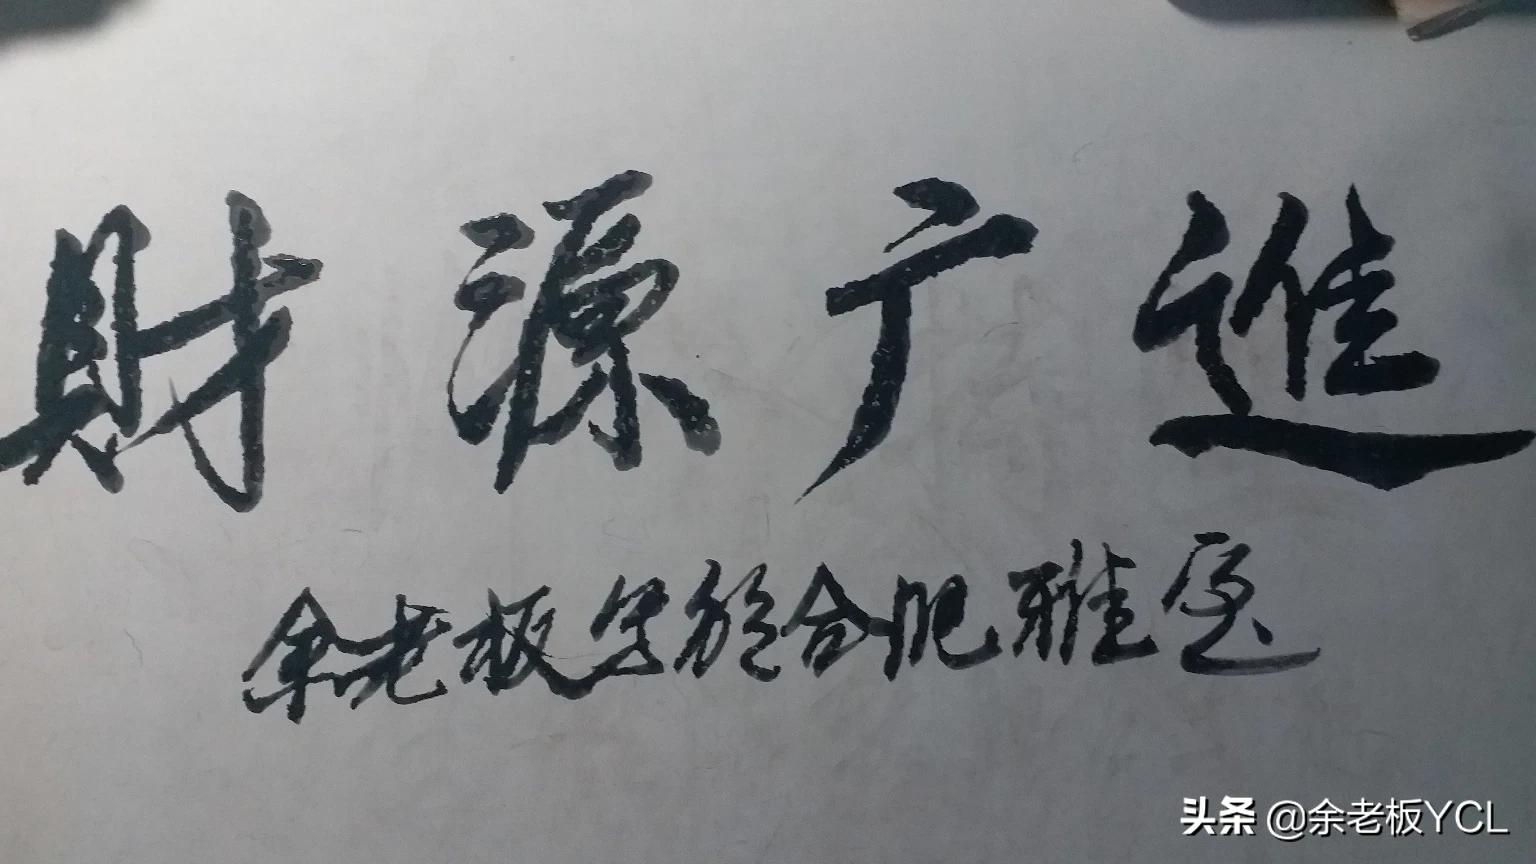 財源广進
余老板写於合肥雅
头条 @余老板YCL